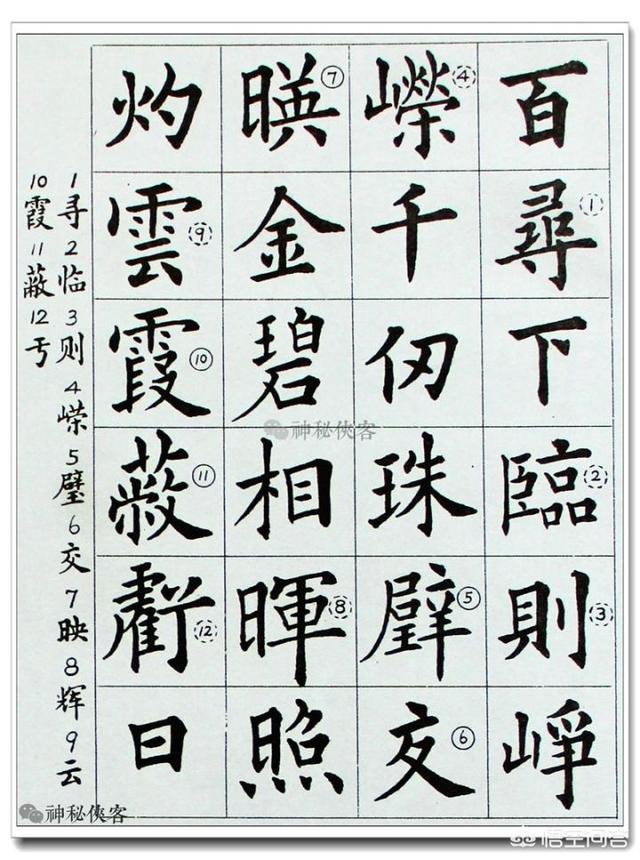 百尋①下臨②則③崢
嶸④千仞珠璧⑤交⑥
暎⑦金碧相暉⑧照
灼雲⑨霞⑩蔽⑪虧⑫日
1寻2临3则4嵘5璧6交7映8辉9云
10霞11蔽12亏
神秘俠客
神秘俠客
悟空问答